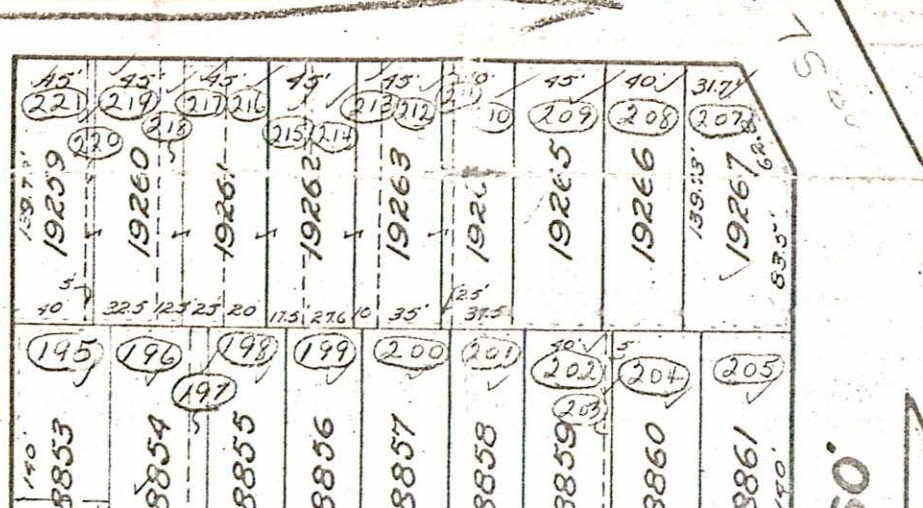 45' 45' 45' 45' 45' 45' 40' 31.7'
221 219 217 216 213 212 10 209 208 207
220 218 215 214
139.73' 19259 19260 19261 19262 19263 1926 19265 19266 139.13' 19267 62.8
83.5'
5'
40' 32.5 12.5 25' 20' 17.5' 27.6 10 35' 2.5' 37.5
195 196 198 199 200 201 202 5' 204 205
197 203
140' 8853 8854 8855 8856 8857 8858 8859 8860 8861 140'